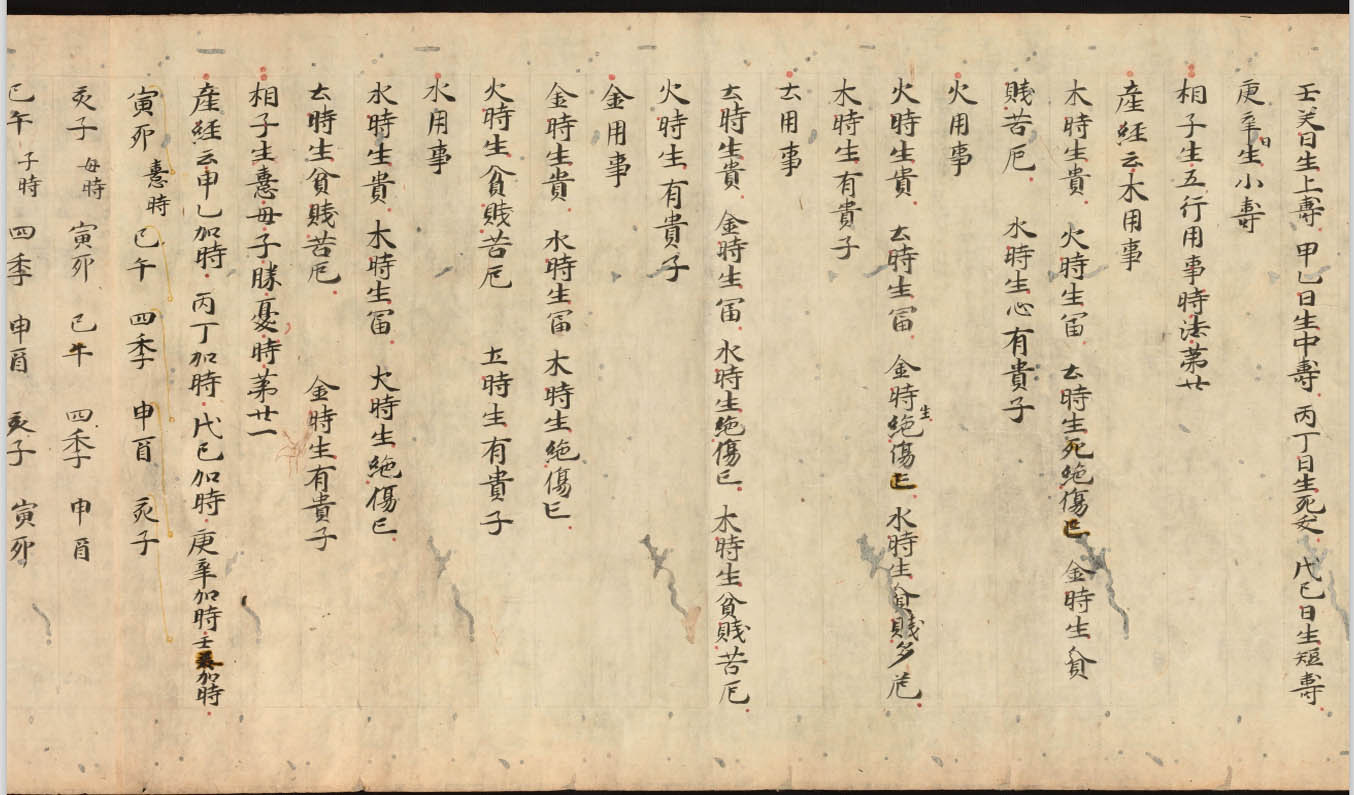 壬癸日生上壽 甲乙日生中壽 丙丁日生死亡 戊己日生短壽
庚辛日生小壽
相子生五行用事時法第廿
産経云木用事
木時生貴 火時生富 土時生死絶傷亡 金時生貧
賎苦厄 水時生心有貴子
火用事
火時生貴 土時生富 金時生絶傷亡 水時生貧賎多厄
木時生有貴子
土用事
土時生貴 金時生富 水時生絶傷亡 木時生貧賎苦厄
火時生有貴子
金用事
金時生貴 水時生富 木時生絶傷亡
火時生貧賎苦厄 土時生有貴子
水用事
水時生貴 木時生富 火時生絶傷亡
土時生貧賎苦厄 金時生有貴子
相子生憙母子勝憂時第廿一
産経云甲乙加時 丙丁加時 戊己加時 庚辛加時 壬癸加時
寅卯 憙時 巳午 四季 申酉 亥子
亥子 母時 寅卯 巳午 四季 申酉
巳午 子時 四季 申酉 亥子 寅卯